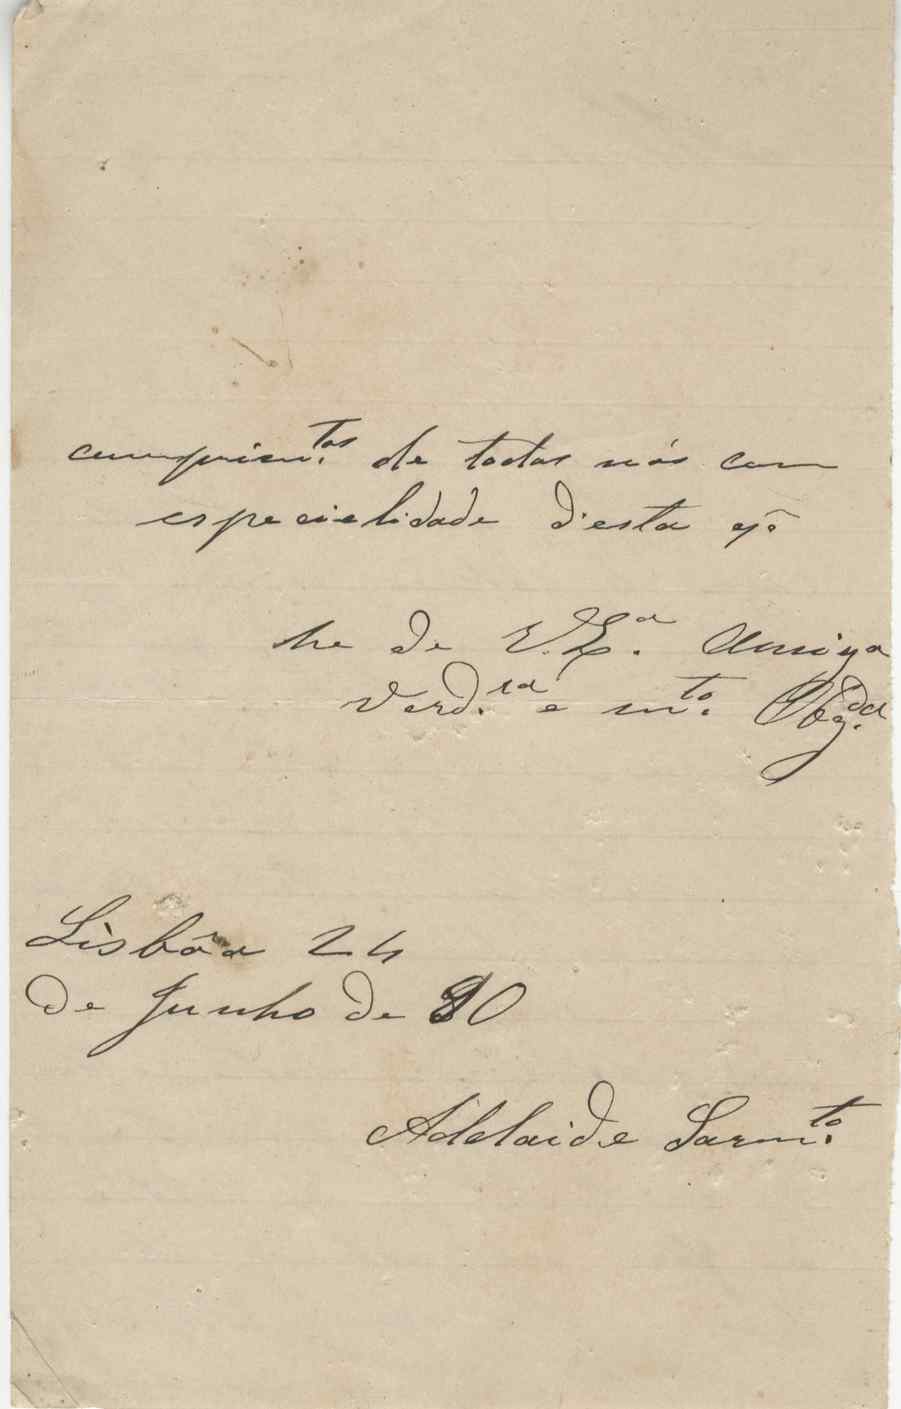 cumprim.tos de todos nós com
especialidade d'esta q̃
he de V. Ex.a Amiga
Verd.ra e m.to Obg.da
Lisbôa 24
de Junho de 90
Adelaide Sarm.to